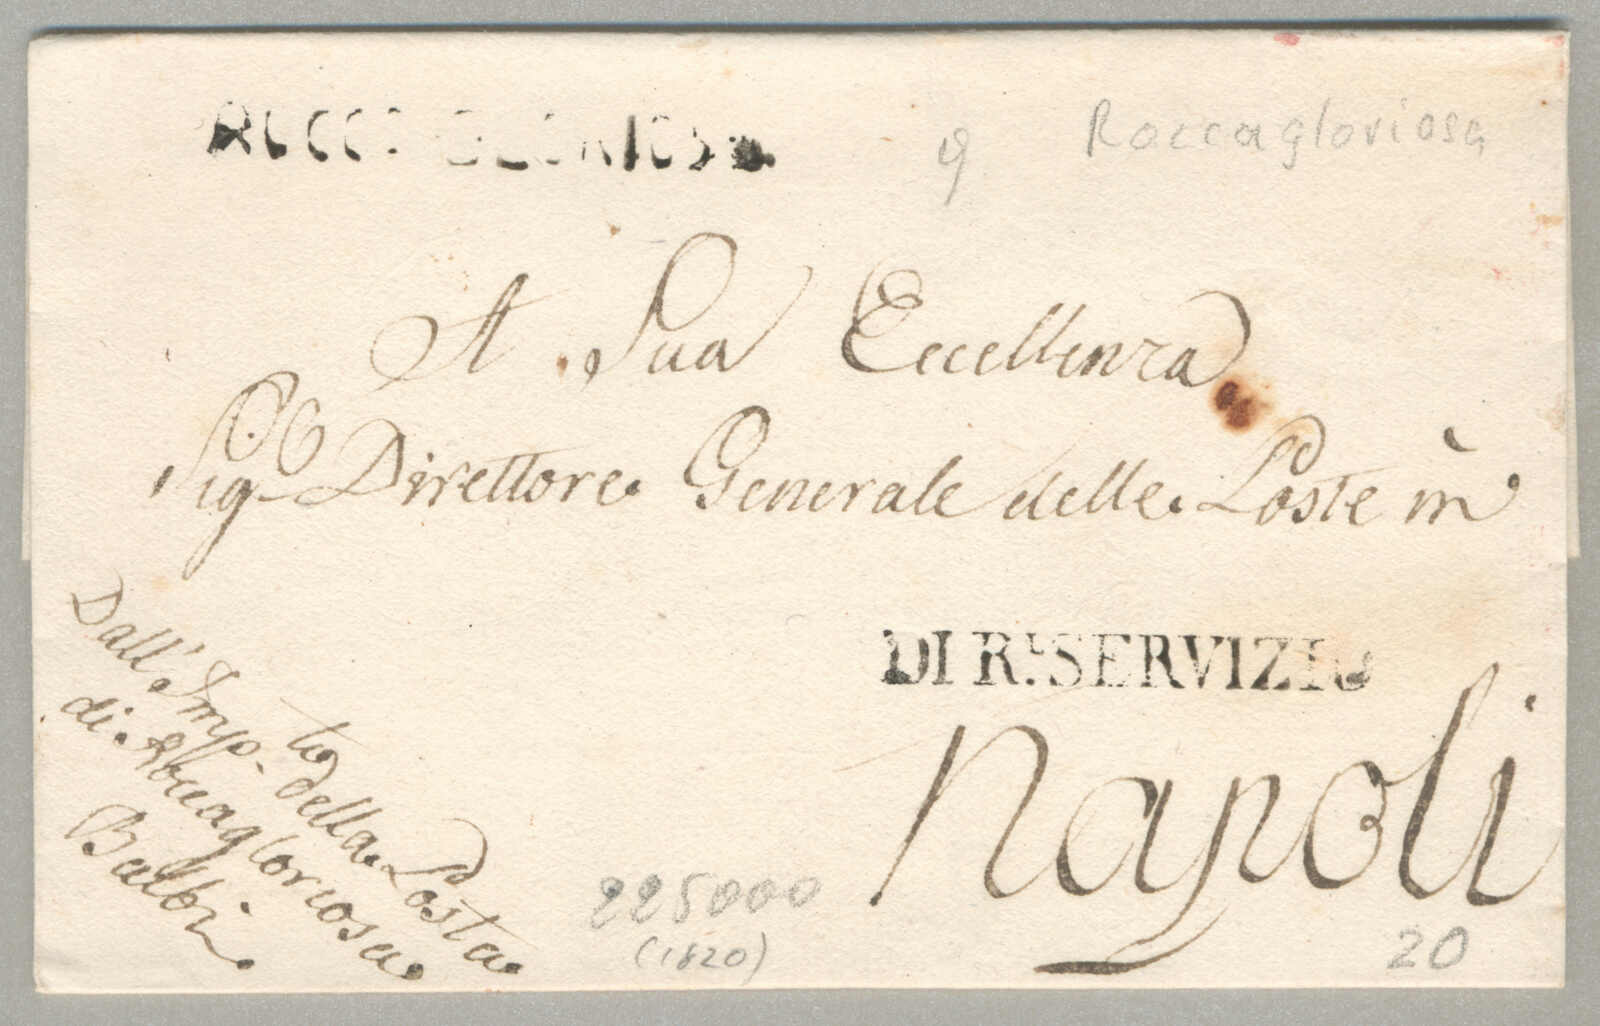 Roccagloriosa
9
A Sua Eccellenza
Sig.r Direttore Generale delle Poste in
DI R.L SERVIZIO
Napoli
Dall' Imp.to della Posta
di Roccagloriosa
Balbi
225000
(1820)
20